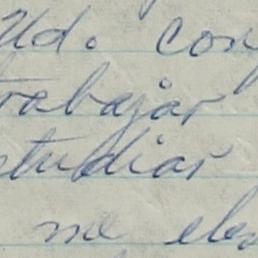 Ud. con
trabajar
studiar
me ele